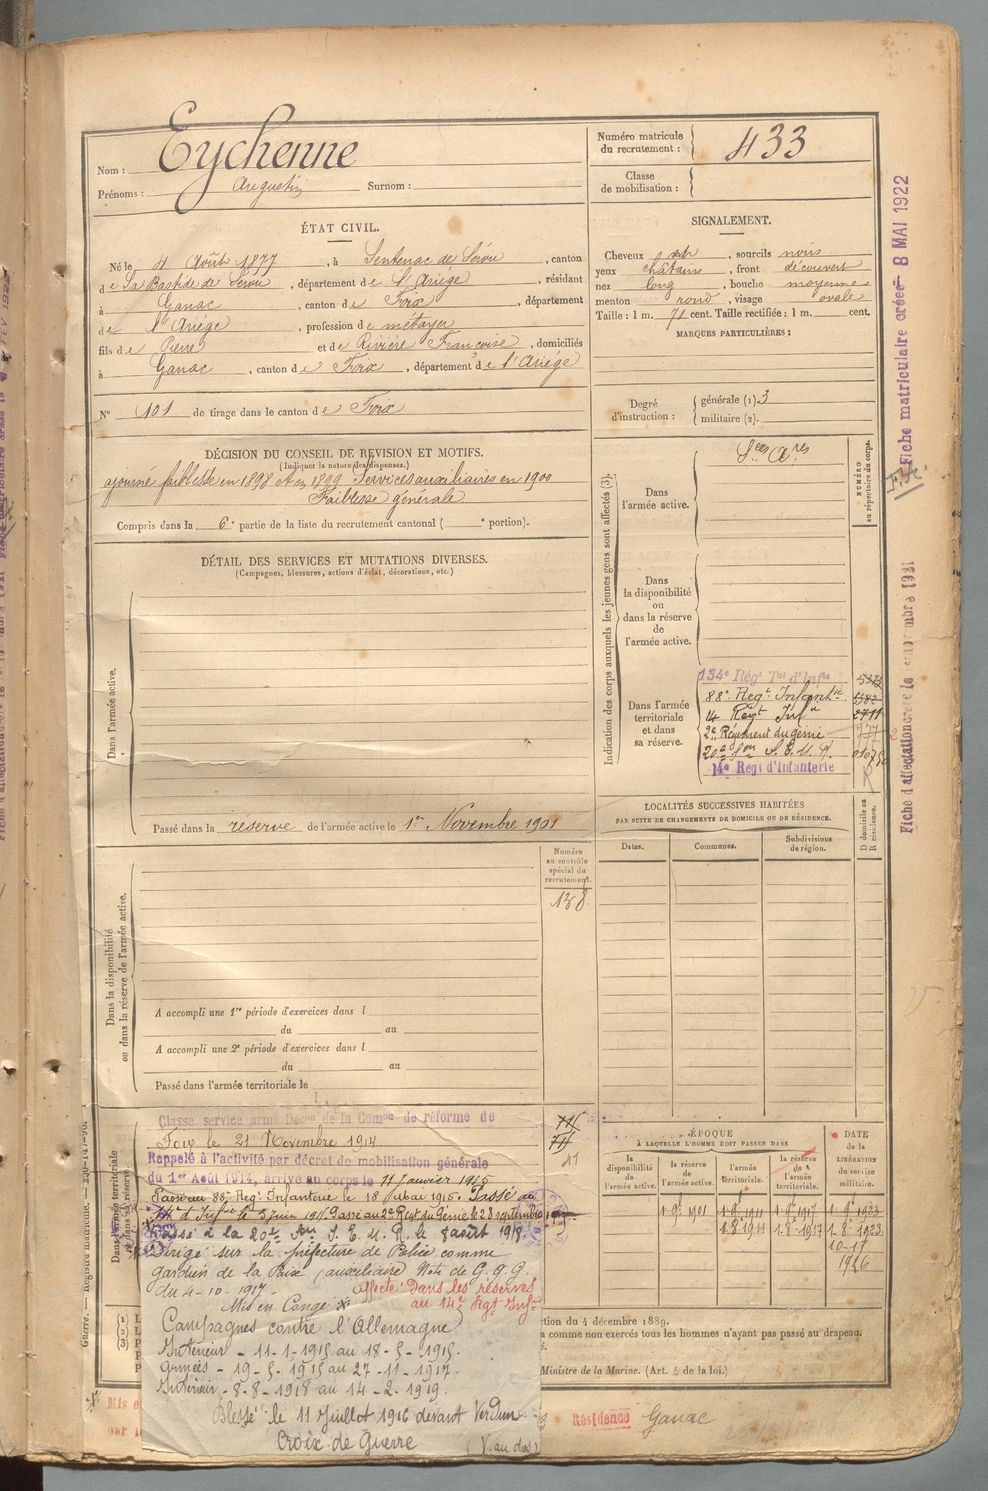 Nom : Eychenne
Prénoms : Augustin Surnom :
Numéro matricule
du recrutement : 433
Classe
de mobilisation :
ÉTAT CIVIL.
Né le 4 Août 1877, à Sentenac de Sérou, canton
de La Bastide de Sérou, département de l'Ariège, résidant
à Ganac, canton de Foix, département
de l'Ariège, profession de métayer
fils de Pierre et de Rivière Françoise, domiciliés
à Ganac, canton de Foix, département de l'Ariège
N° 101 de tirage dans le canton de Foix
SIGNALEMENT.
Cheveux ch, sourcils noirs
yeux châtains, front découvert
nez long, bouche moyenne
menton rond, visage ovale
Taille : 1 m. 71 cent. Taille rectifiée : 1 m. cent.
MARQUES PARTICULIÈRES :
Degré
d'instruction :
générale (1). 3
militaire (2).
DÉCISION DU CONSEIL DE REVISION ET MOTIFS.
(Indiquer la nature des dispenses.)
ajourné faiblesse en 1898 et en 1899 Services auxiliaires en 1900
Faiblesse générale
Compris dans la 6e partie de la liste du recrutement cantonal ( e portion).
DÉTAIL DES SERVICES ET MUTATIONS DIVERSES.
(Campagnes, blessures, actions d'éclat, décorations, etc.)
Dans l'armée active.
Passé dans la réserve de l'armée active le 1er Novembre 1901
Indication des corps auxquels les jeunes gens sont affectés (3).
NUMÉRO
au répertoire du corps.
Dans
l'armée active.
Sces Ares
Dans
la disponibilité
ou
dans la réserve
de
l'armée active.
Dans l'armée
territoriale
et dans
sa réserve.
134e Régt Tal d'Infie
88e Regt Infantie
14 Regt Infa
2e Régiment du génie
20e Son S. E. M. R.
14e Regt d'Infanterie
2711
LOCALITÉS SUCCESSIVES HABITÉES
PAR SUITE DE CHANGEMENTS DE DOMICILE OU DE RÉSIDENCE.
Dates.
Communes.
Subdivisions
de région.
D domicile ou
R résidence.
Numéro
au contrôle
spécial du
recrutement.
188
Dans la disponibilité
ou dans la réserve de l'armée active.
A accompli une 1re période d'exercices dans l
du au
A accompli une 2e période d'exercices dans l
du au
Passé dans l'armée territoriale le
Dans l'armée territoriale
et dans sa réserve.
Classe service armé Decon de la Comon de réforme de
Foix le 21 Novembre 1914
Rappelé à l'activité par décret de mobilisation générale
du 1er Août 1914, arrivé au corps le 11 Janvier 1915
Passé au 88e Regt Infanterie le 18 Mai 1915. Passé au
14e d'Infie le 3 Juin 191 Passé au 2e Regt du Génie le 23 septembre
Passé à la 20e Son S. E. M. R. le 8 août 1918.
Dirigé sur la préfecture de Police comme
gardien de la Paix (auxiliaire) Note de G.Q.G.
du 4-10-1917.
Mis en Congé
affecté dans les réserves
au 14e Régt Infie
Campagnes contre l'Allemagne
Intérieur - 11-1-1915 au 18-5-1915.
Armées - 19-5-1915 au 27-11-1917.
Intérieur - 8-8-1918 au 14-2-1919.
Blessé le 11 Juillet 1916 devant Verdun
Croix de Guerre
(V. au dos)
ÉPOQUE
À LAQUELLE L'HOMME DOIT PASSER DANS
la
disponibilité
de
l'armée active.
la réserve
de
l'armée active.
l'armée
territoriale.
la réserve
de
l'armée
territoriale.
DATE
de la
LIBÉRATION
du service
militaire.
1-9bre 1901
1-9-1911
1-9-1917
1-9-1923
1-8-1911
1-8-1917
1-8-1923
ction du 4 décembre 1889.
a comme non exercés tous les hommes n'ayant pas passé au drapeau.
Ministre de la Marine. (Art. 4 de la loi.)
Résidence Ganac
Mis e
Fiche matriculaire créée - 8 MAI 1922